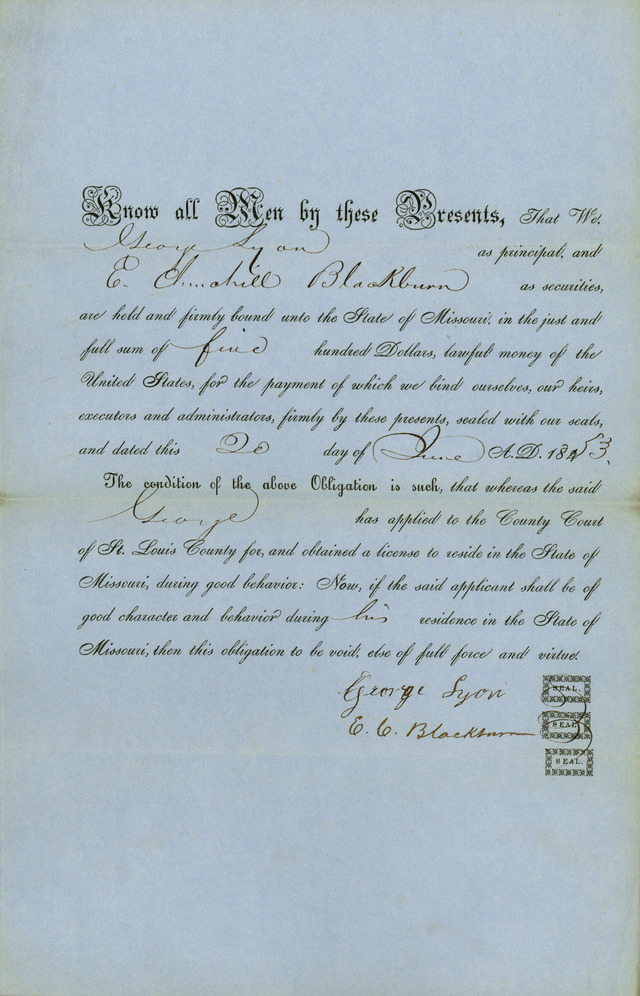 Know all Men by these Presents, That We,
George Lyon as principal, and
E. Churchill Blackburn as securities,
are held and firmly bound unto the State of Missouri, in the just and
full sum of five hundred Dollars, lawful money of the
United States, for the payment of which we bind ourselves, our heirs,
executors and administrators, firmly by these presents, sealed with our seals,
and dated this 20 day of June A.D. 1853.
The condition of the above Obligation is such, that whereas the said
George has applied to the County Court
of St. Louis County for, and obtained a license to reside in the State of
Missouri, during good behavior: Now, if the said applicant shall be of
good character and behavior during his residence in the State of
Missouri, then this obligation to be void, else of full force and virtue.
George Lyon SEAL.
E. C. Blackburn SEAL.
SEAL.